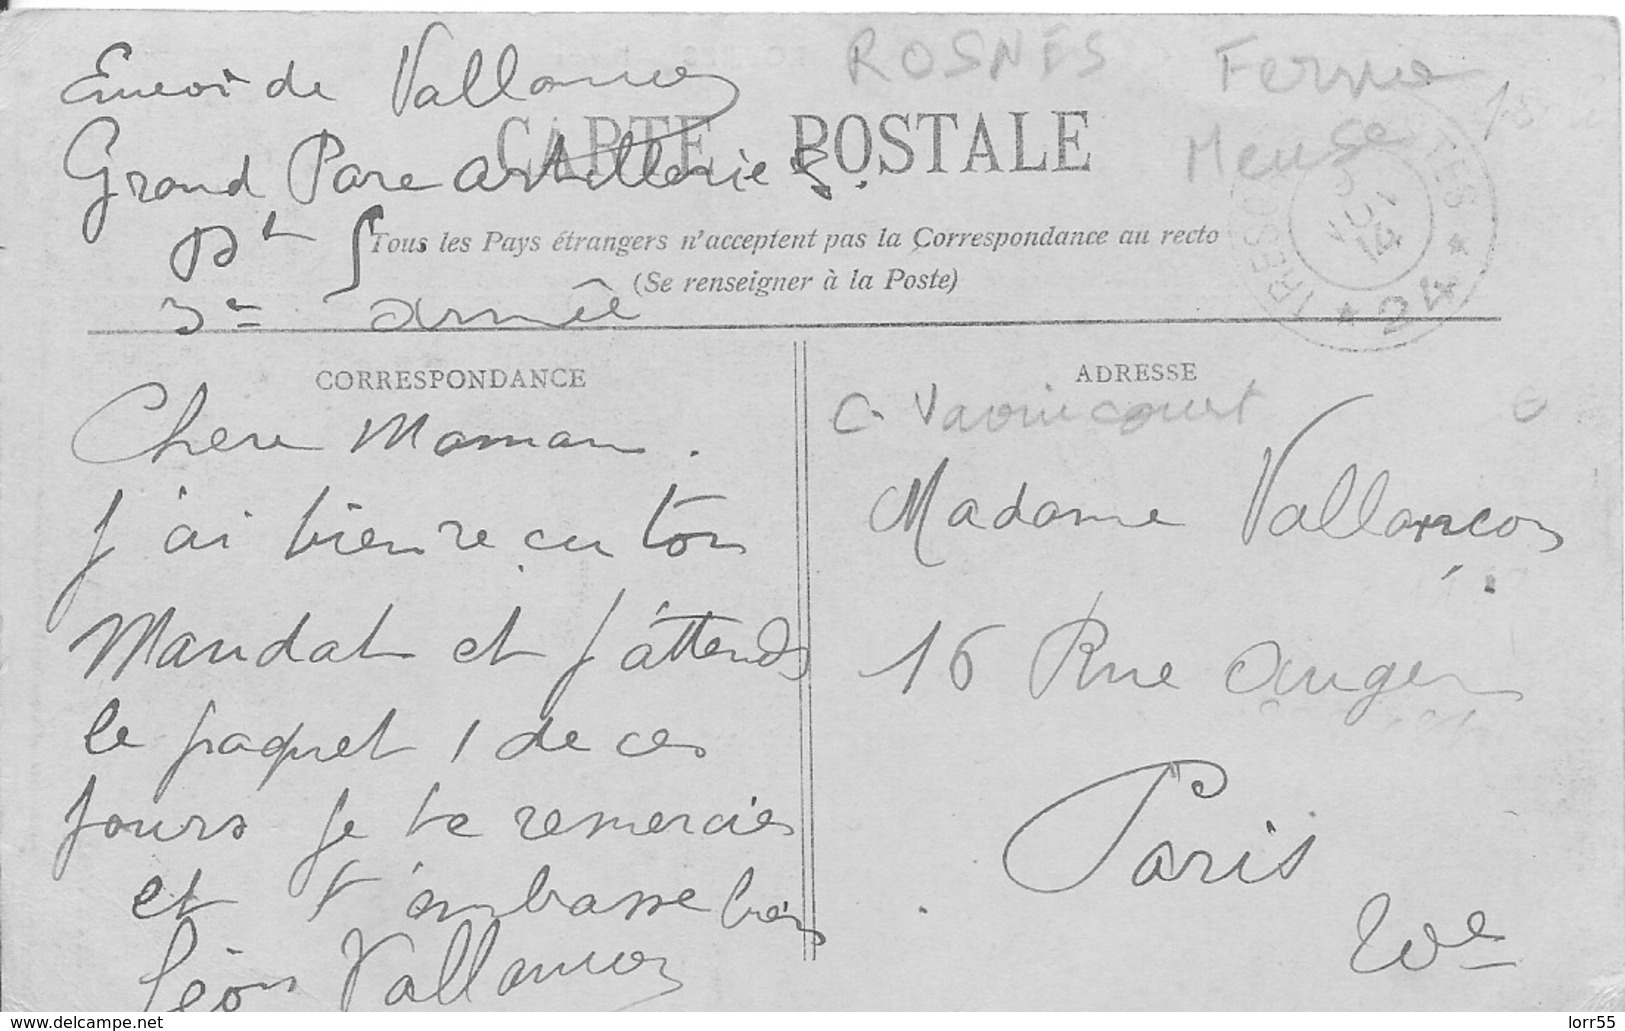 Envoi de Vallançon
ROSNES Ferme
Meuse
CARTE POSTALE
Grand Parc artillerie
Dt 5
Tous les Pays étrangers n'acceptent pas la Correspondance au recto
(Se renseigner à la Poste)
3e armée
TRESOR POSTES
OCT
14
* 24 *
CORRESPONDANCE
Chere Maman.
J'ai bien reçu ton
Mandat et j'attends
le paquet 1 de ces
jours je te remercies
et t'embrasse bien
Léon Vallançon
ADRESSE
C. Vavincourt
Madame Vallançon
16 Rue Auger
Paris
20e
lorr55
www.delcampe.net